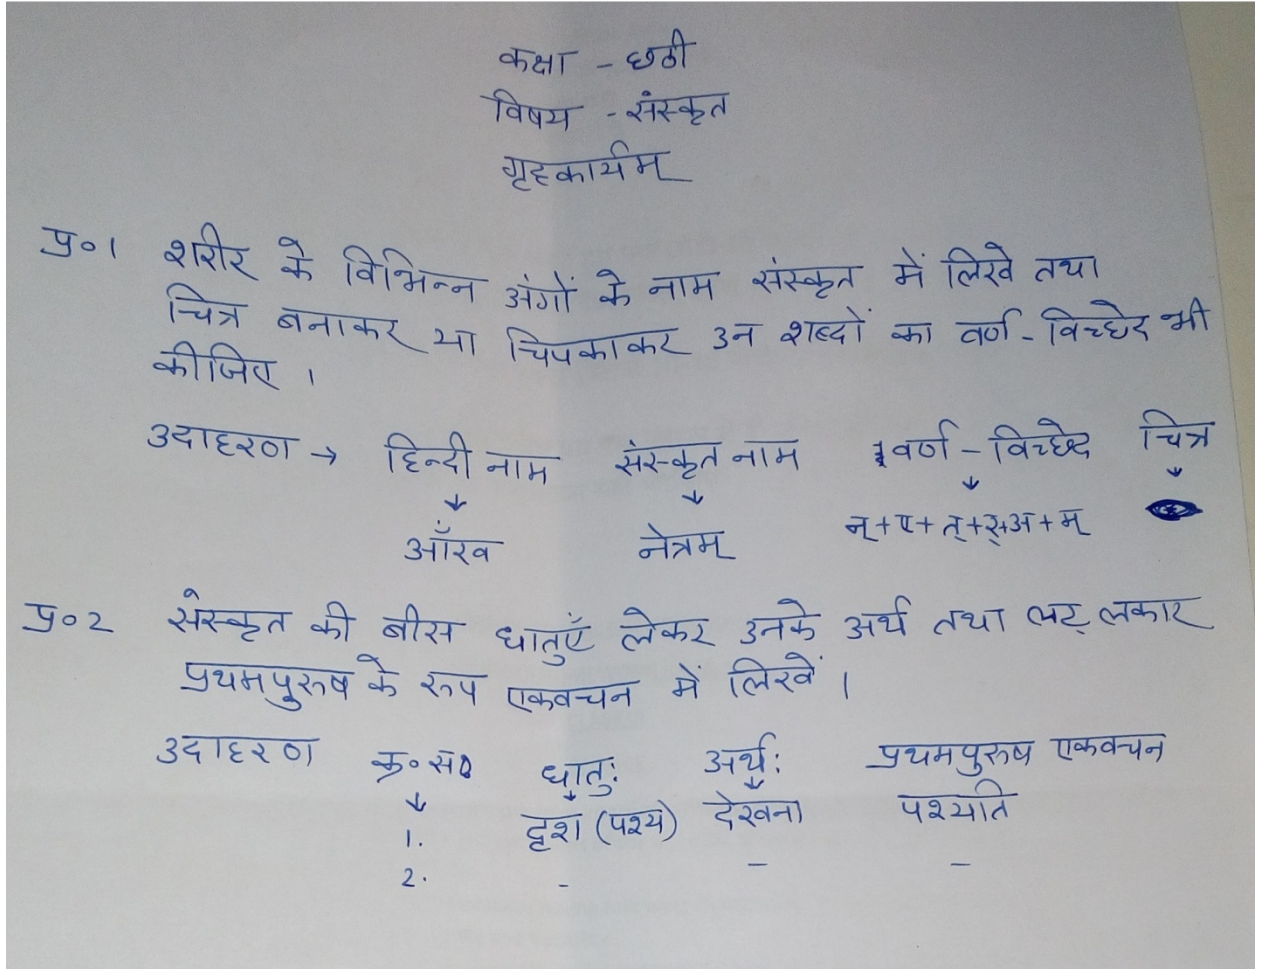 कक्षा - छठी
विषय - संस्कृत
गृहकार्यम्
प्र०1 शरीर के विभिन्न अंगों के नाम संस्कृत में लिखे तथा
चित्र बनाकर या चिपकाकर उन शब्दों का वर्ण-विच्छेद भी
कीजिए ।
उदाहरण → हिन्दी नाम संस्कृत नाम वर्ण-विच्छेद चित्र
↓ ↓ ↓ ↓
आँख नेत्रम् न्+ए+त्+र्+अ+म्
प्र०2 संस्कृत की बीस धातुएँ लेकर उनके अर्थ तथा लट् लकार
प्रथमपुरुष के रूप एकवचन में लिखें ।
उदाहरण क्र०स० धातुः अर्थः प्रथमपुरुष एकवचन
↓ ↓ ↓
1. दृश (पश्य) देखना पश्यति
2. - - -